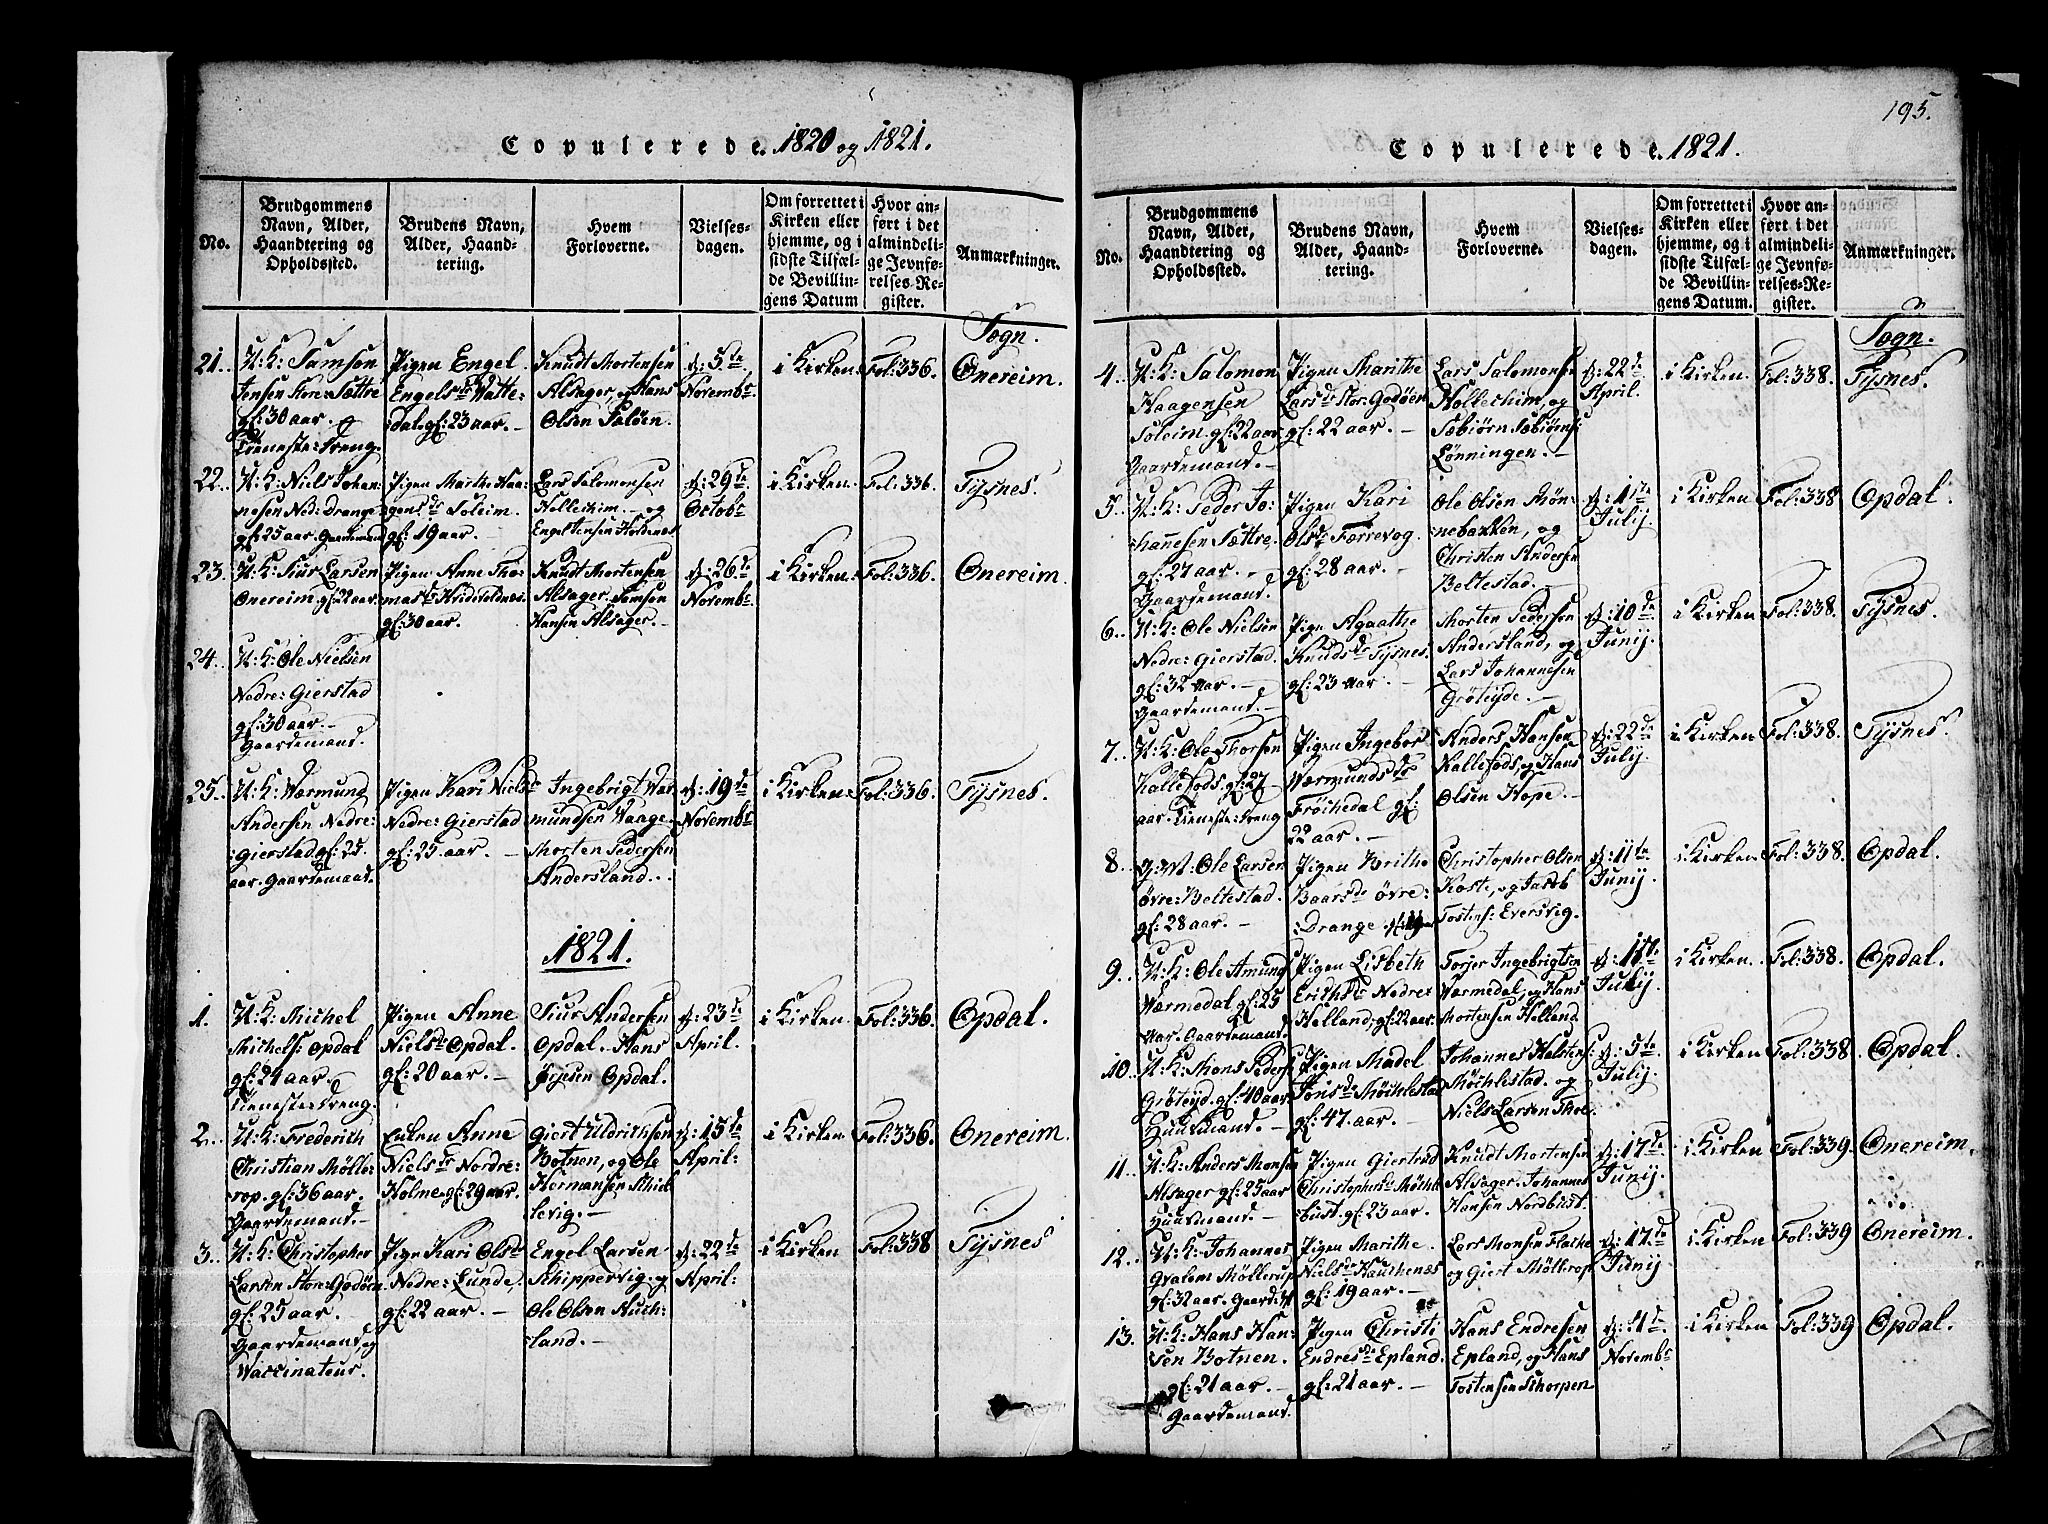 Copulerede. 1820 og 1821.
No.
Brudgommens Navn, Alder, Haandtering og Opholdssted.
Brudens Navn, Alder, Haandtering.
Hvem Forloverne.
Vielsesdagen.
Om forrettet i Kirken eller hjemme, og i sidste Tilfælde Bevillingens Datum
Hvor anført i det almindelige Jevnførelses-Register.
Anmærkninger.
Sogn.
21.
U:K: Samson
Jensen Store: Sættre
gl: 30 aar. og
Tieneste: Dreng.
Pigen Engel
Engels dr Watte-
dal. gl: 23 aar. –
Knudt Mortensen
Alsager, og Hans
Olsen Saløen.
d: 5te
Novembr.
i Kirken.
Fol: 336.
Onereim.
22.
U:K: Niels Johan-
nesen Ned: Drange
gl: 25 aar. Gaardemand
Pigen Marthe Haa-
gens dr Soleim.
gl: 19 aar. –
Lars Salomonsen
Holleckim – og
Engel Jensen
d: 29de
Octobr
i Kirken.
Fol: 336.
Tysnes.
23.
U:K: Siur Larsen
Onereim. gl: 22 aar.
Pigen Anne Tho-
mas dr
gl: 30 aar.
Knudt Mortensen
Alsager, Samson
Hansen Alsager. –
d: 26de
Novembr.
i Kirken.
Fol: 336.
Onereim.
24.
U:K: Ole Nielsen
Nedre: Gierstad
gl: 30 aar. –
Gaardemand.
25.
U:K: Warmund
Andersen Nedre:
:Gierstad gl: 25
aar. Gaardemand.
Pigen Kari Niels dr
Nedre: Gierstad
gl: 25 aar. –
Ingebrigt War-
mundsen Waage
Morten Pedersen
Andersland..
d: 19de
Novembr
i Kirken.
Fol: 336.
Tysnes.
1821.
1.
U:K: Michel
Michels: Opdal
gl: 24 aar.
Tieneste: Dreng.
Pigen Anne
Niels dr Opdal.
gl: 20 aar. –
Siur Andersen
Opdal. Hans
Ørjesen Opdal.
d: 23de
April.
i Kirken.
Fol: 336.
Opdal.
2.
U:K: Frederich
Christian Møller-
rop. gl: 36 aar.
Gaardemand. –
Enken Anne
Niels dr Nordre:
Holme. gl: 29 aar.
Giert Uldrichsen
Botnen, og Ole
Hermansen Skie-
levig. –
d: 15de
April:
i Kirken
Fol: 336.
Onereim.
3.
U:K: Christopher
Larsen Store: Godøen
gl: 25 aar.
Gaardemand, og
Waccinateur.
Pign Kari Ols dr
Nedre: Lunde,
gl: 22 aar. –
Engel Larsen
Skippervig. og
Ole Olsen Huch-
land. –
d: 22de
April:
i Kirken
Fol: 338
Tysnes
195.
Copulerede. 1821.
No.
Brudgommens Navn, Alder, Haandtering og Opholdssted.
Brudens Navn, Alder, Haandtering.
Hvem Forloverne.
Vielsesdagen.
Om forrettet i Kirken eller hjemme, og i sidste Tilfælde Bevillingens Datum.
Hvor anført i det almindelige Jevnførelses-Register.
Anmærkninger.
Sogn.
4.
U:K: Salomon
Haagensen
Soleim. gl: 22 aar
Gaardemand. –
Pigen Marithe
Lars dr Stor: Godøen
gl: 22 aar. –
Lars Salomonsen
Hollechim, og
Sæbiørn Sæbiørns:
Lønningen. –
d: 22de
April.
i Kirken.
Fol: 338.
Tysnes.
5.
U:K: Peder Jo-
hannesen Sættre,
gl: 27 aar. –
Gaardemand.
Pigen Kari
Ols dr Færrevog.
gl: 28 aar. –
Ole Olsen Møn-
nebakken, og
Christen Andersen
Beltestad. –
d: 1ste
Julij.
i Kirken.
Fol: 338
Opdal.
6.
U:K: Ole Nielsen
Nedre: Gierstad.
gl: 32 Aar. –
Gaardemand. –
Pigen Agaathe
Knuds dr Tysnes.
gl: 23 Aar. –
Morten Pedersen
Andersland, og
Lars Johannesen
Grøteyde. –
d: 10de
Junij.
i Kirken
Fol: 338.
Tysnes.
7.
U:K: Ole Thorsen
Kallefods. gl: 27
aar. Tieneste: Dreng
Pigen Ingebor
Wærmunds dr
Frøchedal gl:
22 aar. –
Anders Hansen
Kallefods, og Hans
Olsen Hope. –
d: 22de
Julij.
i Kirken
Fol: 338.
Tysnes.
8.
G:M: Ole Larsen
øvre: Beltestad.
gl: 28 aar.
Pigen Brithe
Baars dr øvre:
:Drange
Christopher Olsen
Koste, og Jacob
Tostens: Eversvig.
d: 11te
Junij.
i Kirken.
Fol: 338.
Opdal.
9.
U:K: Ole Amund
Wærmedal. gl: 25
Aar. Gaardemand.
Pigen Lisbeth
Erichs dr Nedre:
Helland, gl: 22 aar.
Torjer Ingebrigtsen
Wærmedal, og Hans
Mortensen Helland
Julij.
i Kirken.
Fol: 338.
Opdal.
10.
U:K: Mons Peders:
Grøteyd. gl: 40 aar
Huusmand. –
Pigen Madel
Jons dr Møchlestad
gl: 47 aar. –
Johannes Halstens:
Møchlestad. og
Niels Larsen
d: 5te
Julij.
i Kirken.
Fol: 338.
Opdal.
11.
U:K: Anders Monsen
Alsager gl: 25 aar
Huusmand. –
Pigen Giertrud
Christophers dr Møchle-
bust. gl: 23 aar.
Knudt Mortensen
Alsager. Johannes
Hansen Nordbust.
d: 17de
Junij.
i Kirken
Fol: 339.
Onereim.
12.
U:K: Johannes
Gvalem Møllerup
gl: 32 aar. Gaard: M
Pigen Marithe
Niels dr Hauchenæs
gl: 19 aar. –
Lars Monsen Flathe
og Giert Møllerop.
d: 17de
Junij
i Kirken
Fol: 339
Onereim.
13.
U:K: Hans Han-
sen Botnen.
gl: 21 aar. –
Gaardemand.
Pigen Christi
Endres dr Epland.
gl: 21 aar. –
Hans Endresen
Epland, og Hans
Tostensen Skorpen
Novembr
i Kirken
Fol: 339
Opdal.